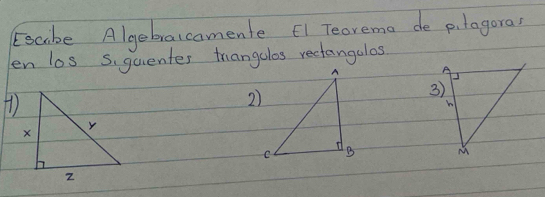 Escribe Algebraicamente El Teorema de pitagoras
en los siguientes triangulos rectangulos
1)
x
y
z
2)
A
C
B
3)
A
h
M